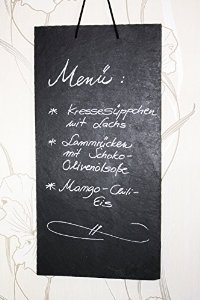 Menü:
* Kressesüppchen
mit Lachs
* Lammrücken
mit Schoko-
Olivenölsoße
* Mango-Chili-
Eis